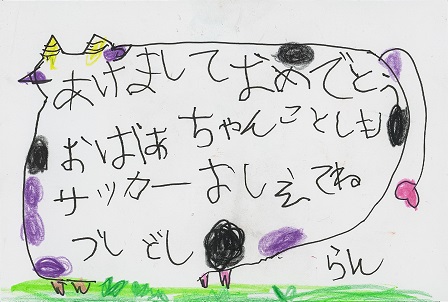 あけまして おめでとう
おばあちゃんことしも
サッカーおしえてね
づし どし らん